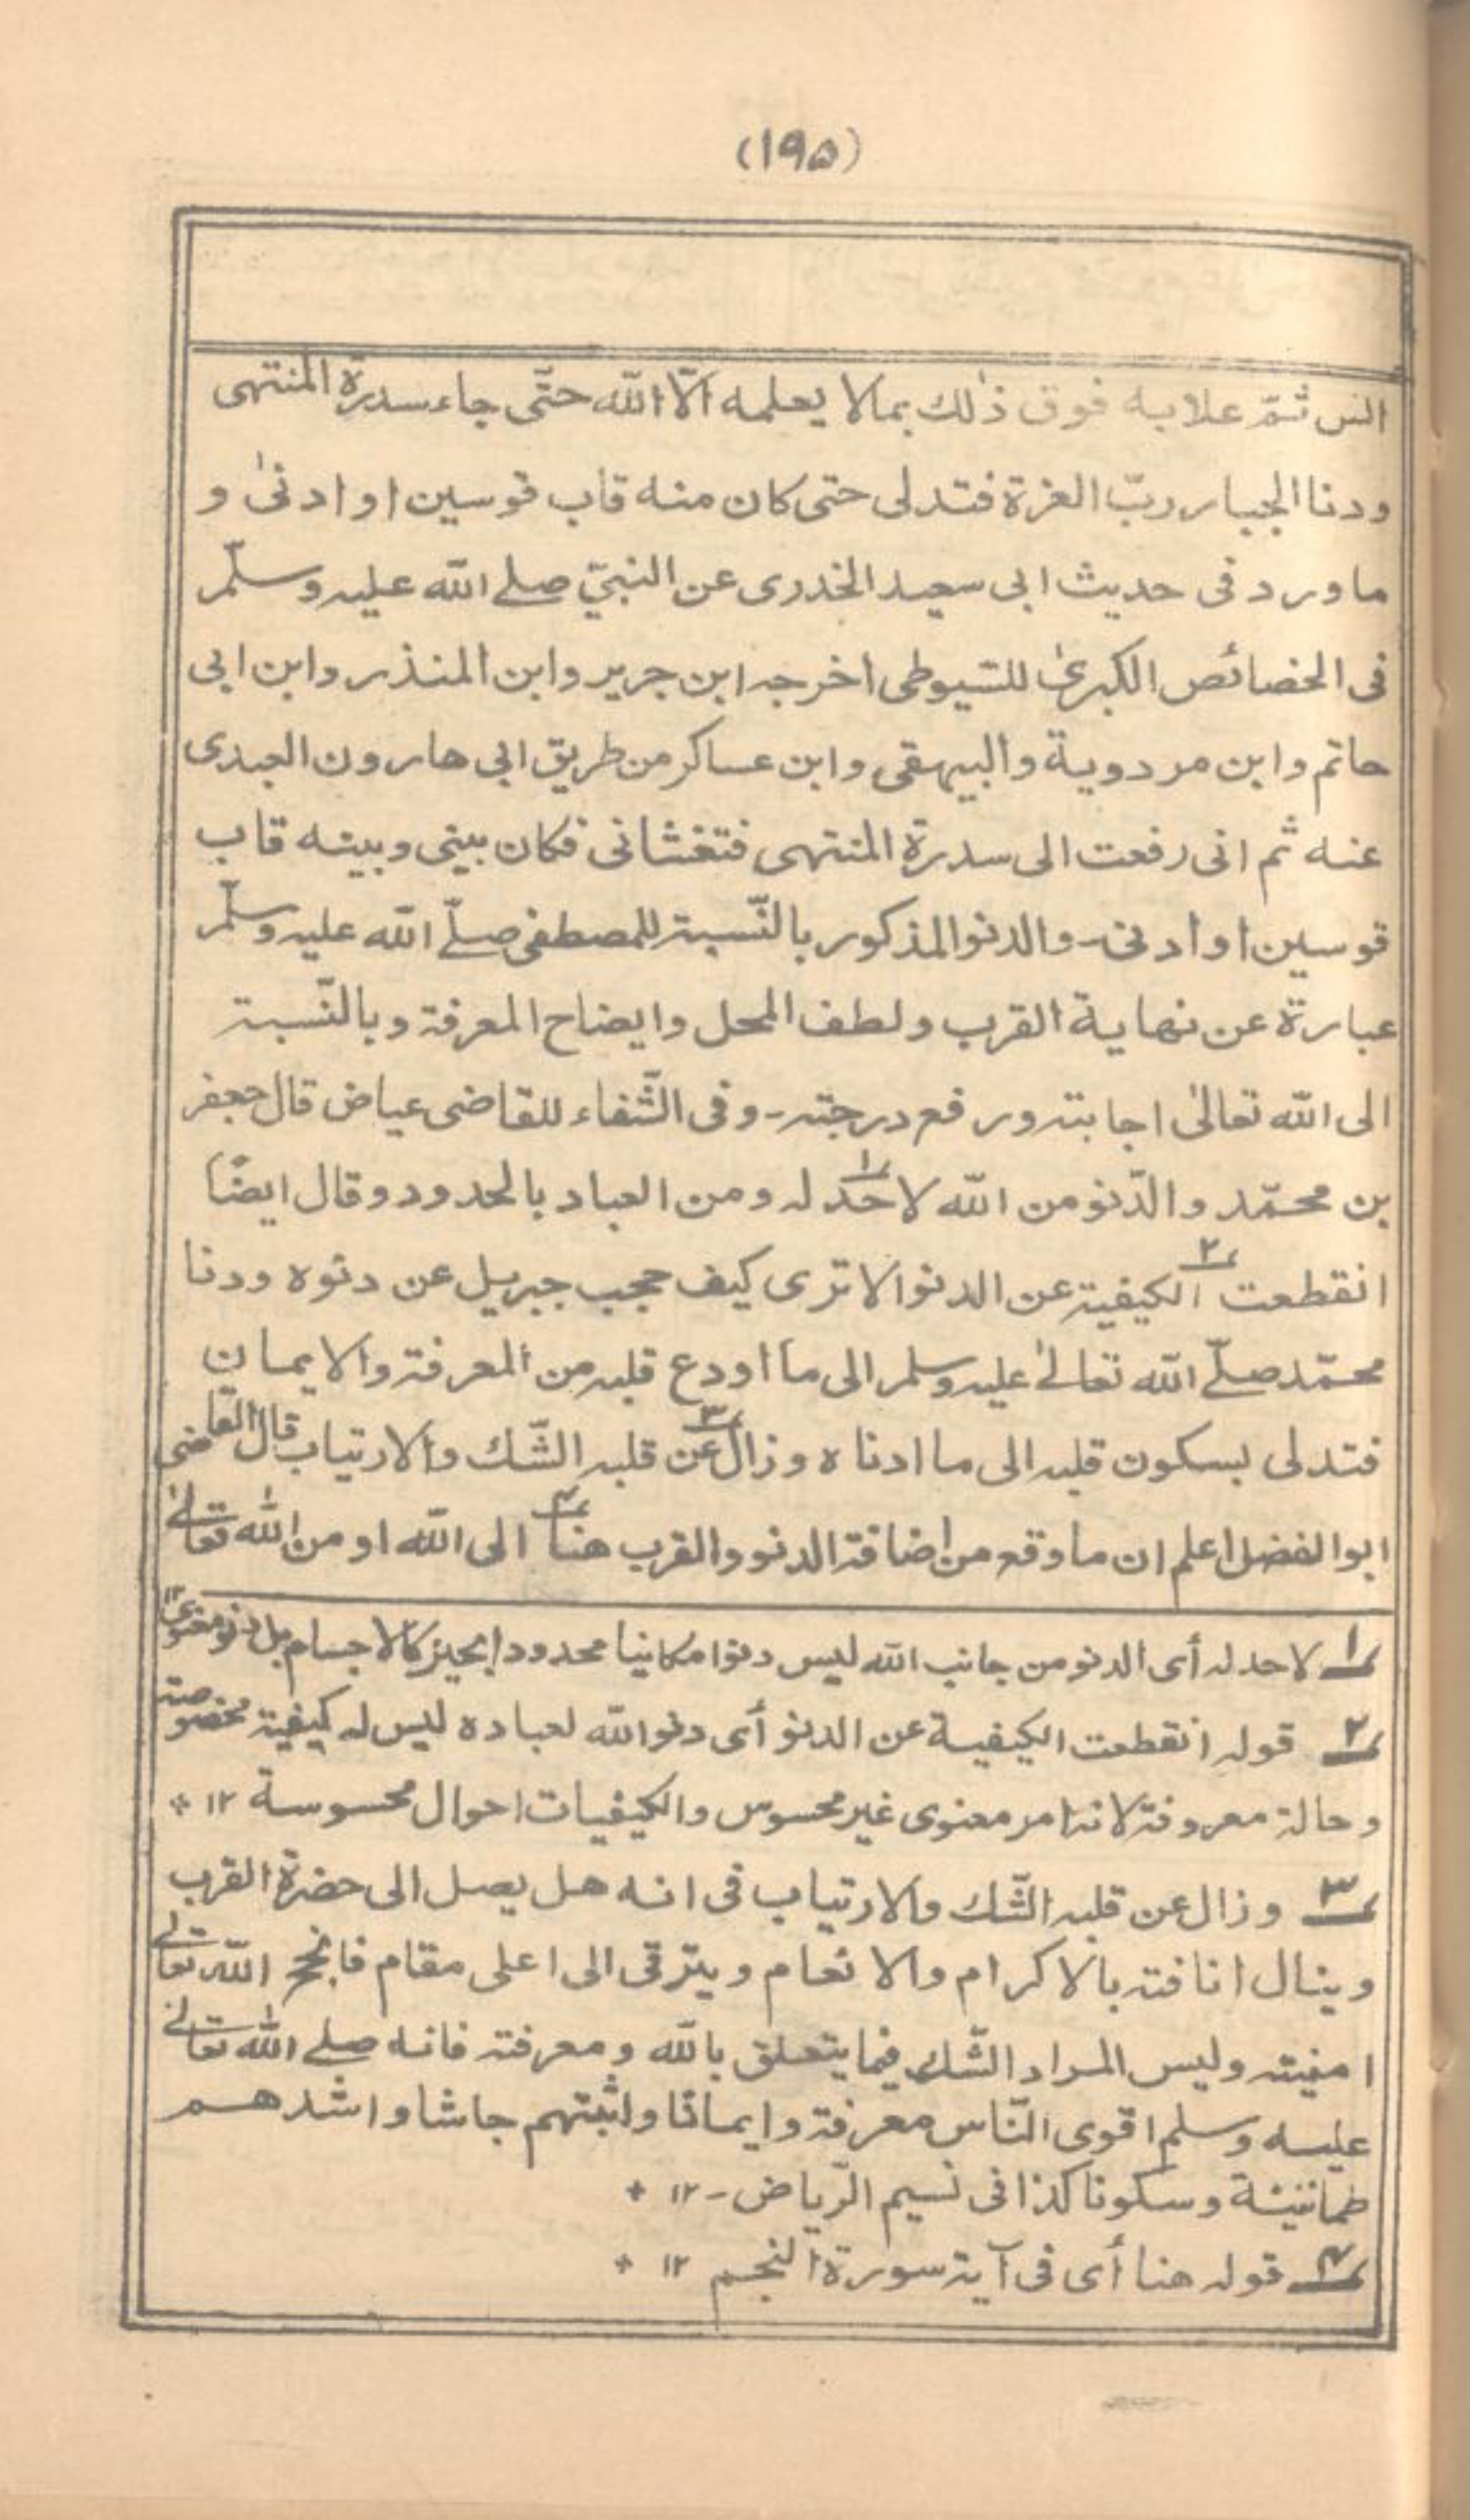 (١٩۵)
انس ثمّ علا به فوق ذٰلك بما لا يعلمه الّا اللّٰه حتّى جاء سدرة المنتهى
ودنا الجبار ربّ العزة فتدلى حتى كان منه قاب قوسين او ادنىٰ و
ما ورد فى حديث ابى سعيد الخدرى عن النبىّ صلے اللّٰه عليه وسلّم
فى الخصائص الكبرىٰ للسّيوطى اخرجه ابن جرير وابن المنذر وابن ابى
حاتم وابن مردوية والبيهقى وابن عساكر من طريق ابى هارون العبدى
عنه ثم انى رفعت الى سدرة المنتهى فتغشانى فكان بينى وبينه قاب
قوسين او ادنى۔ والدنو المذكور بالنّسبة للمصطفى صلّے اللّٰه عليه وسلّم
عبارة عن نهاية القرب ولطف المحل وايضاح المعرفة وبالنّسبة
الى اللّٰه تعالىٰ اجابته ورفع درجته۔ وفى الشّفاء للقاضى عياض قال جعفر
بن محمّد والدّنو من اللّٰه لا حدّ١ له ومن العباد بالحدود وقال ايضًا
انقطعت٢ الكيفية عن الدنو الا ترى كيف حجب جبريل عن دنوه ودنا
محمّد صلّے اللّٰه تعالےٰ عليه وسلم الى ما اودع قلبه من المعرفة والايمان
فتدلى بسكون قلبه الى ما ادناه وزال٣ عن قلبه الشّك والارتياب قال القاضى
ابو الفضل اعلم ان ما وقع من اضافة الدنو والقرب هنا٤ الى اللّٰه او من اللّٰه تعالےٰ
١ لا حد له أى الدنو من جانب اللّٰه ليس دنوا مكانيا محدودا بحيز كالاجسام بل دنو معنوى ١٢
٢ قوله انقطعت الكيفية عن الدنو أى دنو اللّٰه لعباده ليس له كيفية مخصوصة
وحالة معروفة لانه امر معنوى غير محسوس والكيفيات احوال محسوسة ١٢ *
٣ وزال عن قلبه الشّك والارتياب فى انه هل يصل الى حضرة القرب
وينال انافته بالاكرام والانعام ويترقى الى اعلى مقام فانجح اللّٰه تعالےٰ
امنيته وليس المراد الشّك فيما يتعلق باللّٰه ومعرفته فانه صلے اللّٰه تعالےٰ
عليه وسلم اقوى النّاس معرفة وايمانا واثبتهم جاشا واشدهم
طمانينة وسكونا كذا فى نسيم الرّياض۔ ١٢ *
٤ قوله هنا أى فى آية سورة النجم ١٢ *